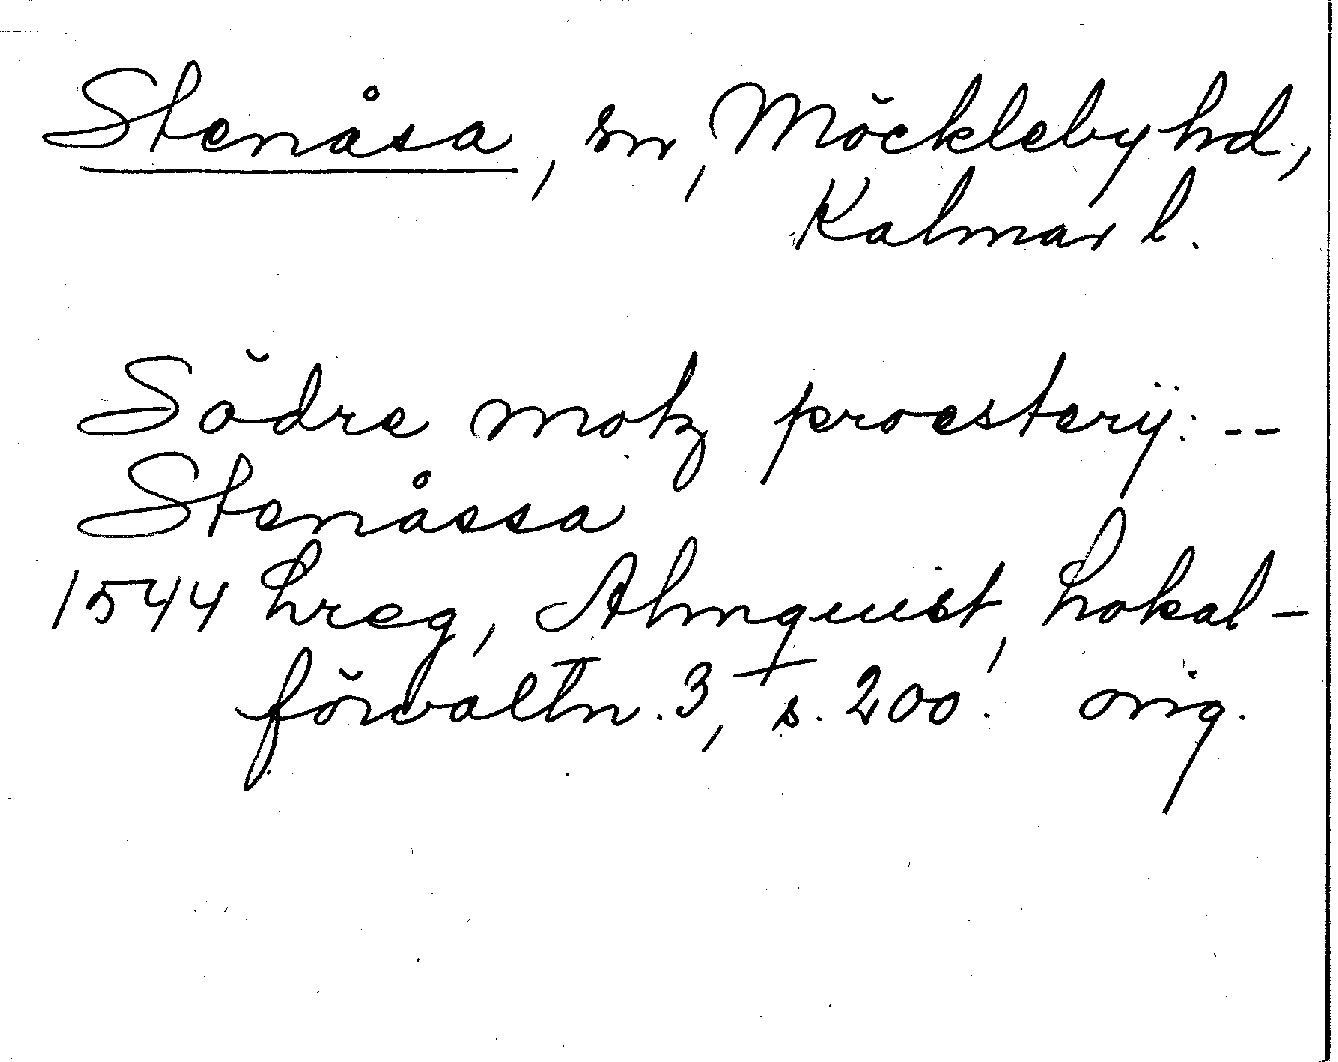 Stenåsa, sn, Möckleby hd,
Kalmar l.
Södre motz proesterij: --
Stenåssa
1544 Lreg, Almquist, Lokal-
förvaltn. 3, s. 200. orig.